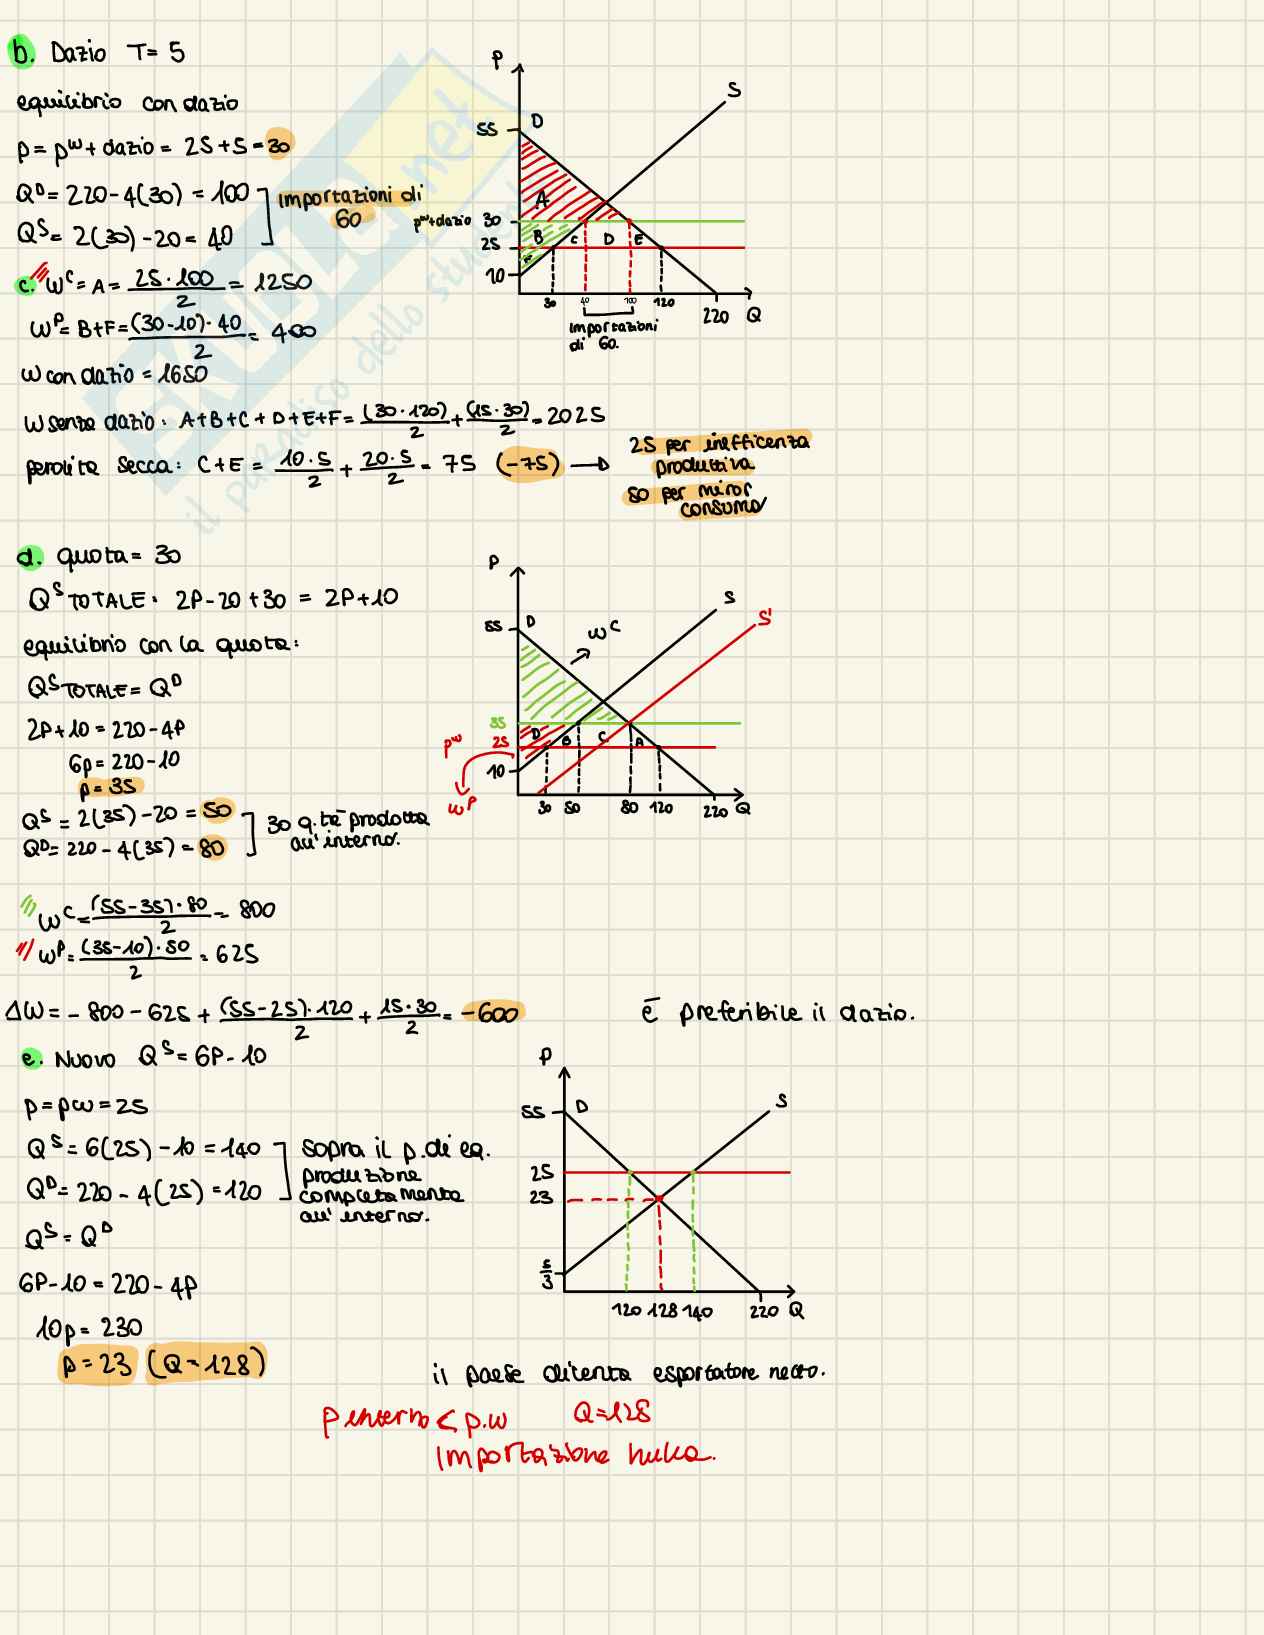 b. Dazio T= 5
equilibrio con dazio
p = pᵂ + dazio = 25 + 5 = 30
Qᴰ = 220 - 4(30) = 100
Qˢ = 2(30) - 20 = 40
importazioni di
60
P
55
D
S
pᵂ+dazio 30
25
10
A
B
C
D
E
F
30
40
100
120
220
Q
importazioni
di 60.
c. Wᶜ = A = 25 · 100 / 2 = 1250
Wᴾ = B+F = (30-10) · 40 / 2 = 400
W con dazio = 1650
W senza dazio: A+B+C+D+E+F = (30 · 120) / 2 + (15 · 30) / 2 = 2025
perdita secca: C+E = 10 · 5 / 2 + 20 · 5 / 2 = 75 (-75) →
25 per inefficenza
produttiva
50 per minor
consumo
d. quota = 30
Qˢ TOTALE: 2P - 20 + 30 = 2P + 10
equilibrio con la quota:
Qˢ TOTALE = Qᴰ
2P + 10 = 220 - 4P
6p = 220 - 10
p = 35
Qˢ = 2(35) - 20 = 50
Qᴰ = 220 - 4(35) = 80
30 q.tà prodotta
all'interno.
P
55
D
Wᶜ
S
S'
35
pᵂ 25
10
Wᴾ
D
B
C
A
30
50
80
120
220
Q
Wᶜ = (55 - 35) · 80 / 2 = 800
Wᴾ = (35 - 10) · 50 / 2 = 625
ΔW = - 800 - 625 + (55 - 25) · 120 / 2 + 15 · 30 / 2 = -600
è preferibile il dazio.
e. Nuovo Qˢ = 6P - 10
p = pw = 25
Qˢ = 6(25) - 10 = 140
Qᴰ = 220 - 4(25) = 120
sopra il p. di eq.
produzione
completamente
all'interno.
Qˢ = Qᴰ
6P - 10 = 220 - 4P
10p = 230
p = 23 (Q = 128)
P
55
D
S
25
23
5/3
120
128
140
220
Q
il paese diventa esportatore netto.
P interno < p.w Q=128
importazione nulla.
SKUOLA.net
il paradiso dello studente